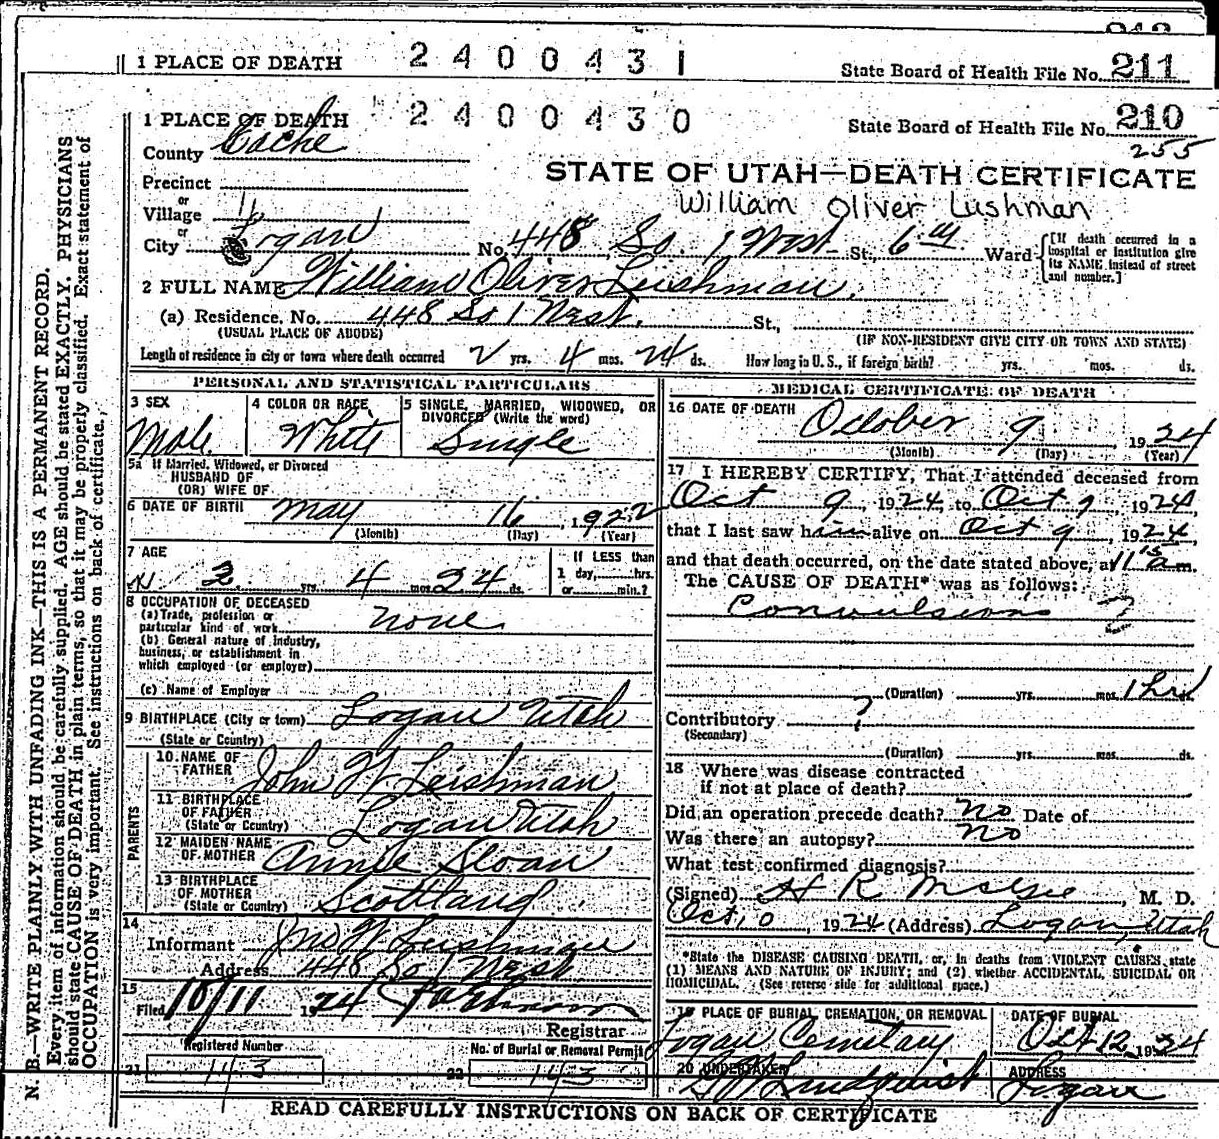 212
1 PLACE OF DEATH 2400431 State Board of Health File No. 211
1 PLACE OF DEATH 2400430 State Board of Health File No. 210
255
County Cache
STATE OF UTAH—DEATH CERTIFICATE
Precinct
William Oliver Lushman
or
Village
or
City Logan No. 448 So 1 West St., 6th Ward [If death occurred in a hospital or institution give its NAME instead of street and number.]
2 FULL NAME William Oliver Leishman.
(a) Residence, No. 448 So 1 West. St.,
(USUAL PLACE OF ABODE) (IF NON-RESIDENT GIVE CITY OR TOWN AND STATE)
Length of residence in city or town where death occurred 2 yrs. 4 mos. 24 ds. How long in U. S., if foreign birth? yrs. mos. ds.
PERSONAL AND STATISTICAL PARTICULARS
3 SEX 4 COLOR OR RACE 5 SINGLE, MARRIED, WIDOWED, OR
DIVORCED (Write the word)
Male White Single
5a If Married, Widowed, or Divorced
HUSBAND OF
(OR) WIFE OF
6 DATE OF BIRTH May 16, 1922
(Month) (Day) (Year)
7 AGE If LESS than
2 yrs. 4 mos. 24 ds. 1 day, hrs.
or min.?
8 OCCUPATION OF DECEASED
(a) Trade, profession or
particular kind of work none
(b) General nature of industry,
business, or establishment in
which employed (or employer)
(c) Name of Employer
9 BIRTHPLACE (City or town) Logan Utah
(State or Country)
PARENTS
10 NAME OF
FATHER John W. Leishman
11 BIRTHPLACE
OF FATHER
(State or Country) Logan Utah
12 MAIDEN NAME
OF MOTHER Annie Sloan
13 BIRTHPLACE
OF MOTHER
(State or Country) Scotland
14
Informant Jno W. Leishman
Address 448 So 1 West
15
Filed 10/11 1924
Registrar
Registered Number No. of Burial or Removal Permit
21 143 22 143
MEDICAL CERTIFICATE OF DEATH
16 DATE OF DEATH October 9, 1924
(Month) (Day) (Year)
17 I HEREBY CERTIFY, That I attended deceased from
Oct 9, 1924, to Oct 9, 1924,
that I last saw him alive on Oct 9, 1924,
and that death occurred, on the date stated above, at 11 15 a m.
The CAUSE OF DEATH* was as follows:
Convulsions ?
(Duration) yrs. mos. 1 hr ds.
Contributory ?
(Secondary)
(Duration) yrs. mos. ds.
18 Where was disease contracted
if not at place of death?
Did an operation precede death? No Date of
Was there an autopsy? No
What test confirmed diagnosis?
(Signed) H R McGee, M. D.
Oct, 1924 (Address) Logan, Utah
*State the DISEASE CAUSING DEATH, or, in deaths from VIOLENT CAUSES, state
(1) MEANS AND NATURE OF INJURY; and (2) whether ACCIDENTAL, SUICIDAL OR
HOMICIDAL. (See reverse side for additional space.)
19 PLACE OF BURIAL, CREMATION, OR REMOVAL DATE OF BURIAL
Logan Cemetary Oct 12, 1924
20 UNDERTAKER ADDRESS
Lindquist Logan
READ CAREFULLY INSTRUCTIONS ON BACK OF CERTIFICATE
N. B.—WRITE PLAINLY WITH UNFADING INK—THIS IS A PERMANENT RECORD.
Every item of information should be carefully supplied. AGE should be stated EXACTLY. PHYSICIANS
should state CAUSE OF DEATH in plain terms, so that it may be properly classified. Exact statement of
OCCUPATION is very important. See instructions on back of certificate.